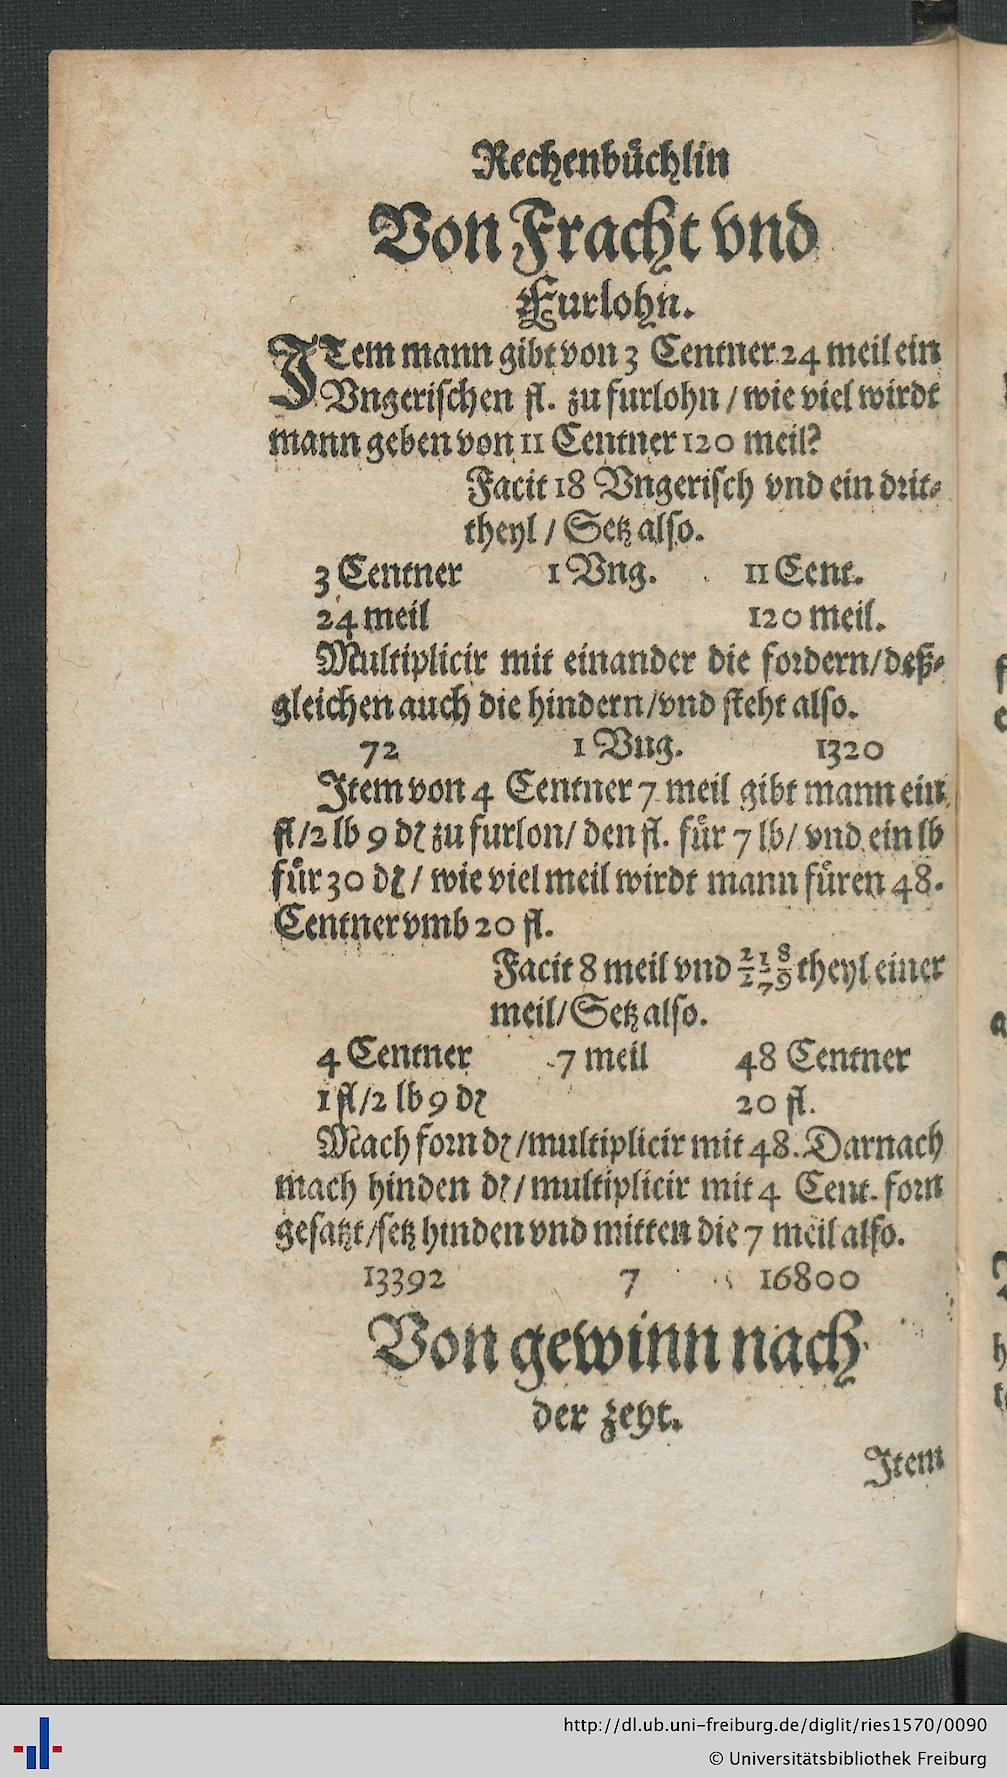 Rechenbüchlin
Von Fracht vnd
Furlohn.
ITem mann gibt von 3 Centner 24 meil ein
Vngerischen fl. zu furlohn / wie viel wirdt
mann geben von 11 Centner 120 meil?
Facit 18 Vngerisch vnd ein drit-
theyl / Setz also.
3 Centner 1 Vng. 11 Cent.
24 meil 120 meil.
Multiplicir mit einander die fordern/deß-
gleichen auch die hindern/vnd steht also.
72 1 Vng. 1320
Item von 4 Centner 7 meil gibt mann ein
fl/2 lb 9 dꝛ zu furlon/ den fl. für 7 lb/ vnd ein lb
für 30 dꝛ / wie viel meil wirdt mann füren 48.
Centner vmb 20 fl.
Facit 8 meil vnd 218/279 theyl einer
meil/Setz also.
4 Centner 7 meil 48 Centner
1 fl/2 lb 9 dꝛ 20 fl.
Mach forn dꝛ/multiplicir mit 48. Darnach
mach hinden dꝛ/ multiplicir mit 4 Cent. forn
gesatzt/setz hinden vnd mitten die 7 meil also.
13392 7 16800
Von gewinn nach
der zeyt.
Item
http://dl.ub.uni-freiburg.de/diglit/ries1570/0090
© Universitätsbibliothek Freiburg